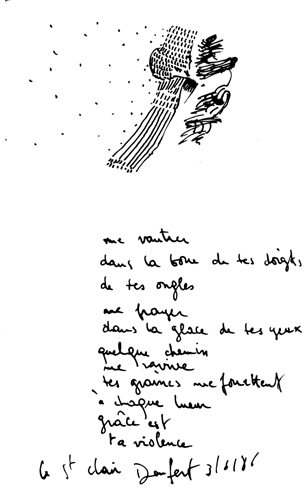 me vautrer
dans la boue de tes doigts
de tes ongles
me frayer
dans la glace de tes yeux
quelque chemin
me ravive
tes graines me fouettent
à chaque lueur
grâce est
ta violence
le St Clair Denfert 3/6/86